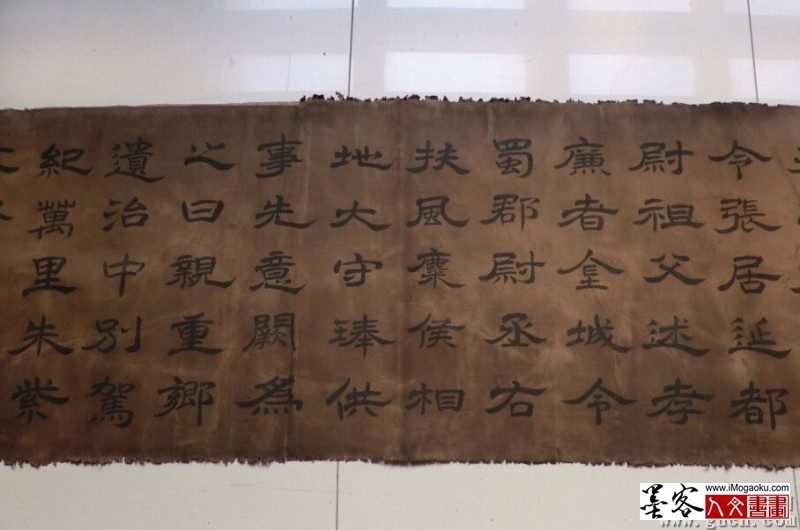 令張居延都
尉祖父述孝
廉者金城令
蜀郡尉丞右
扶風麋侯相
地大守琫供
事先意闕為
之曰親重鄉
遺治中別駕
紀萬里朱紫
墨客
www.iMogaoku.com
人文書畫